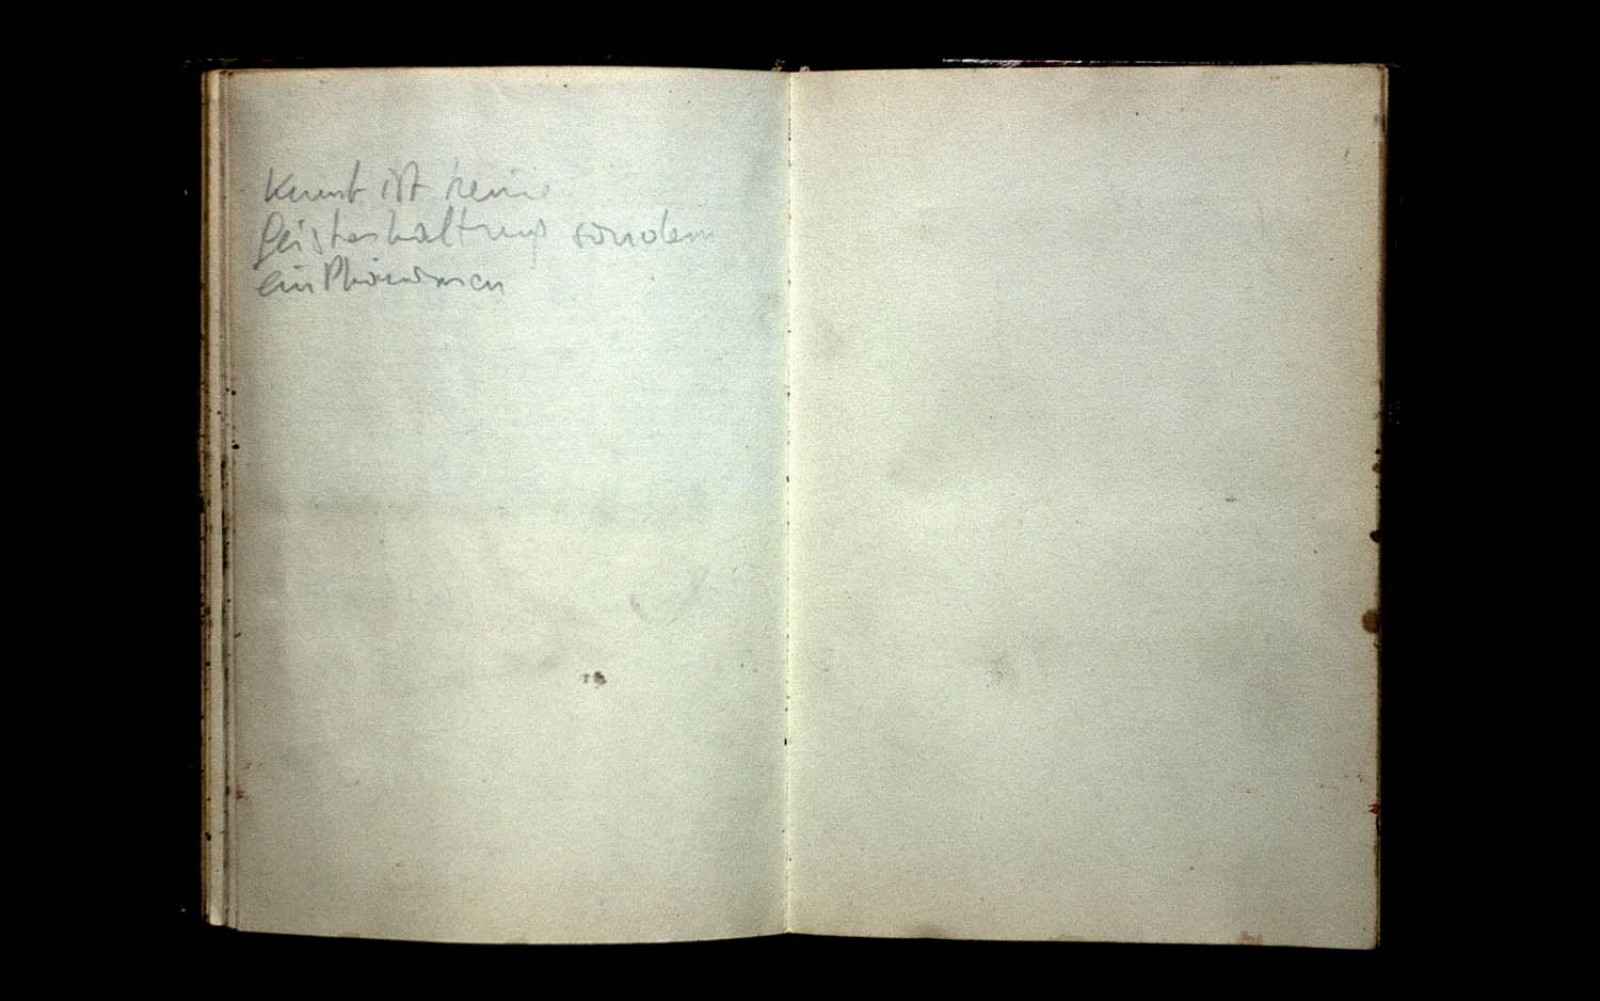 Kunst ist keine
Geisteshaltung sondern
ein Phänomen